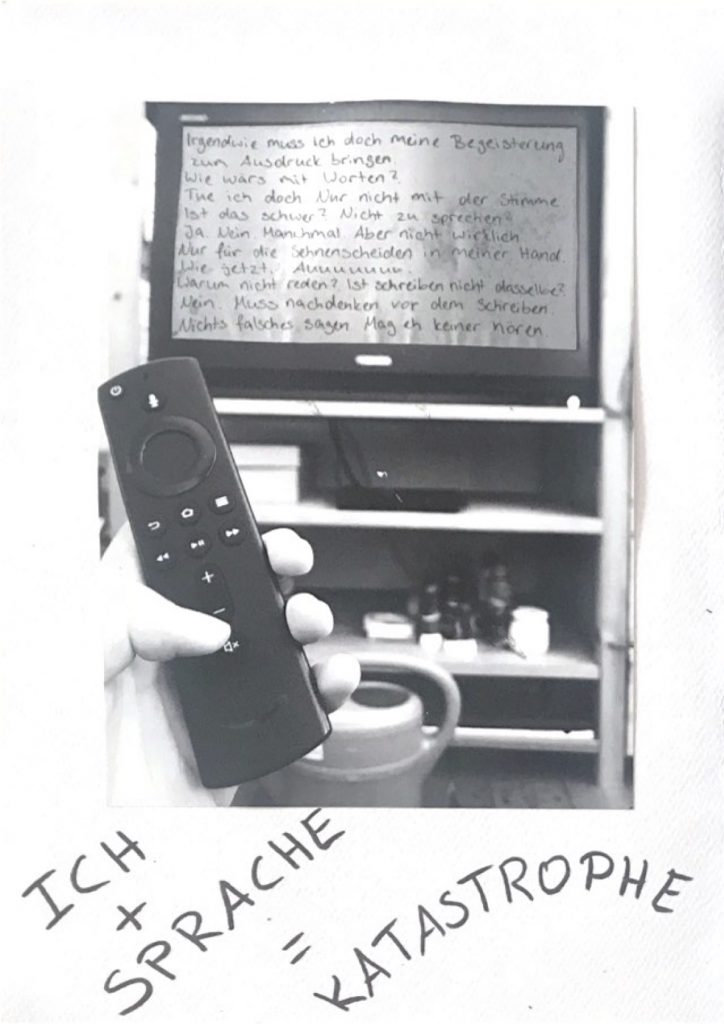 Irgendwie muss ich doch meine Begeisterung
zum Ausdruck bringen.
Wie wärs mit Worten?
Tue ich doch Nur nicht mit der Stimme
Ist das schwer? Nicht zu sprechen?
Ja. Nein. Manchmal. Aber nicht wirklich
Nur für die Sehnenscheiden in meiner Hand.
Wie jetzt. Auuuuuuu.
Warum nicht reden? Ist schreiben nicht dasselbe?
Nein. Muss nachdenken vor dem Schreiben.
Nichts falsches sagen Mag eh keiner hören.
ICH
+
SPRACHE
=
KATASTROPHE